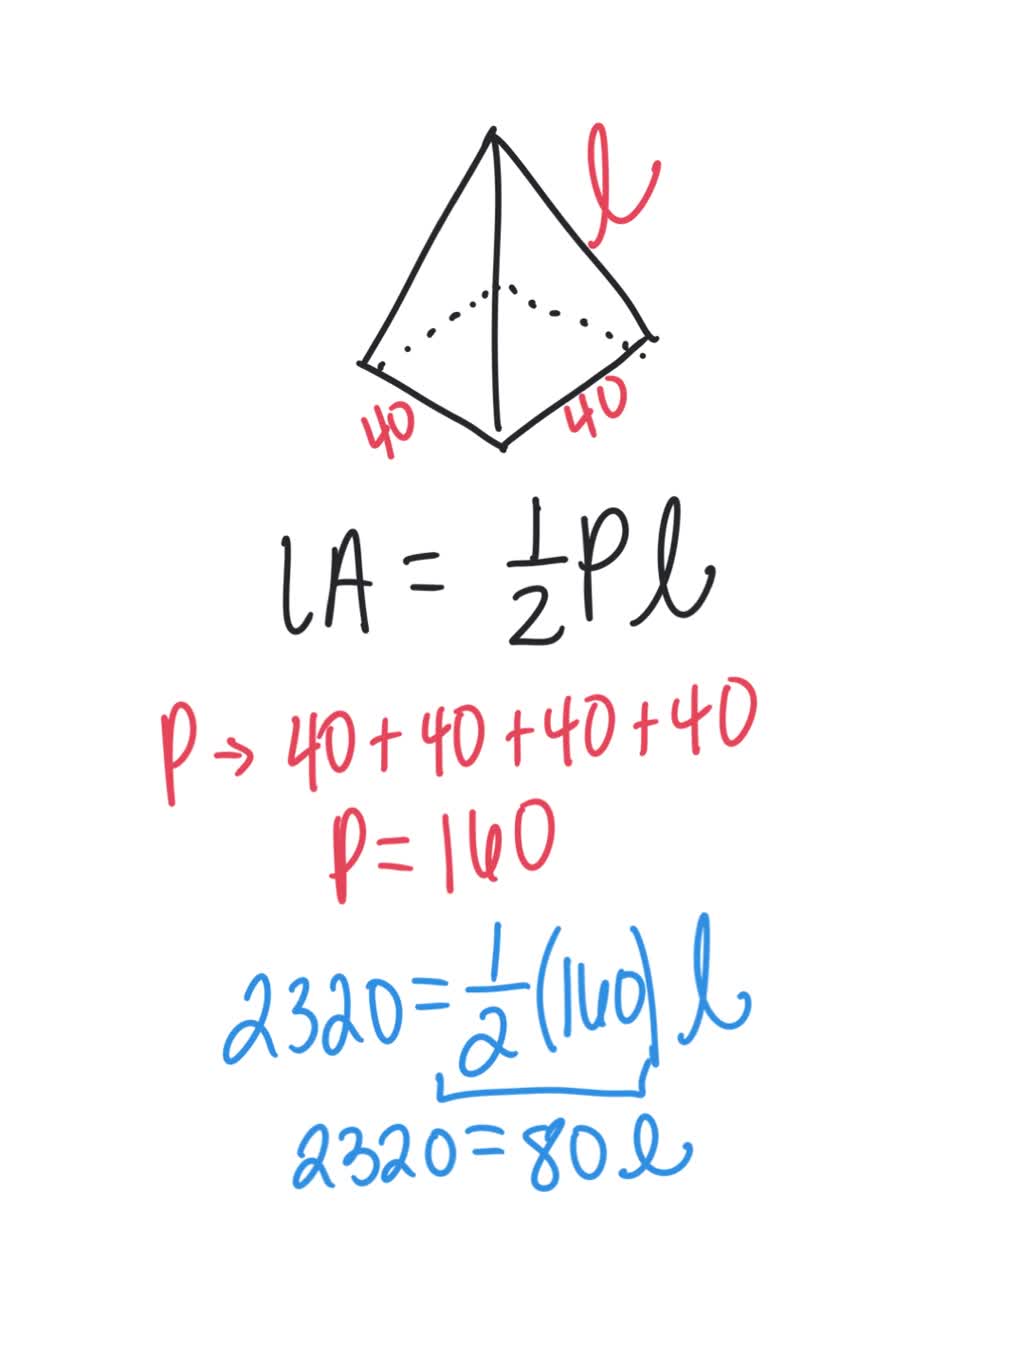 ℓ
40 40
LA = 1/2 Pℓ
P → 40 + 40 + 40 + 40
P = 160
2320 = 1/2 (160) ℓ
2320 = 80 ℓ